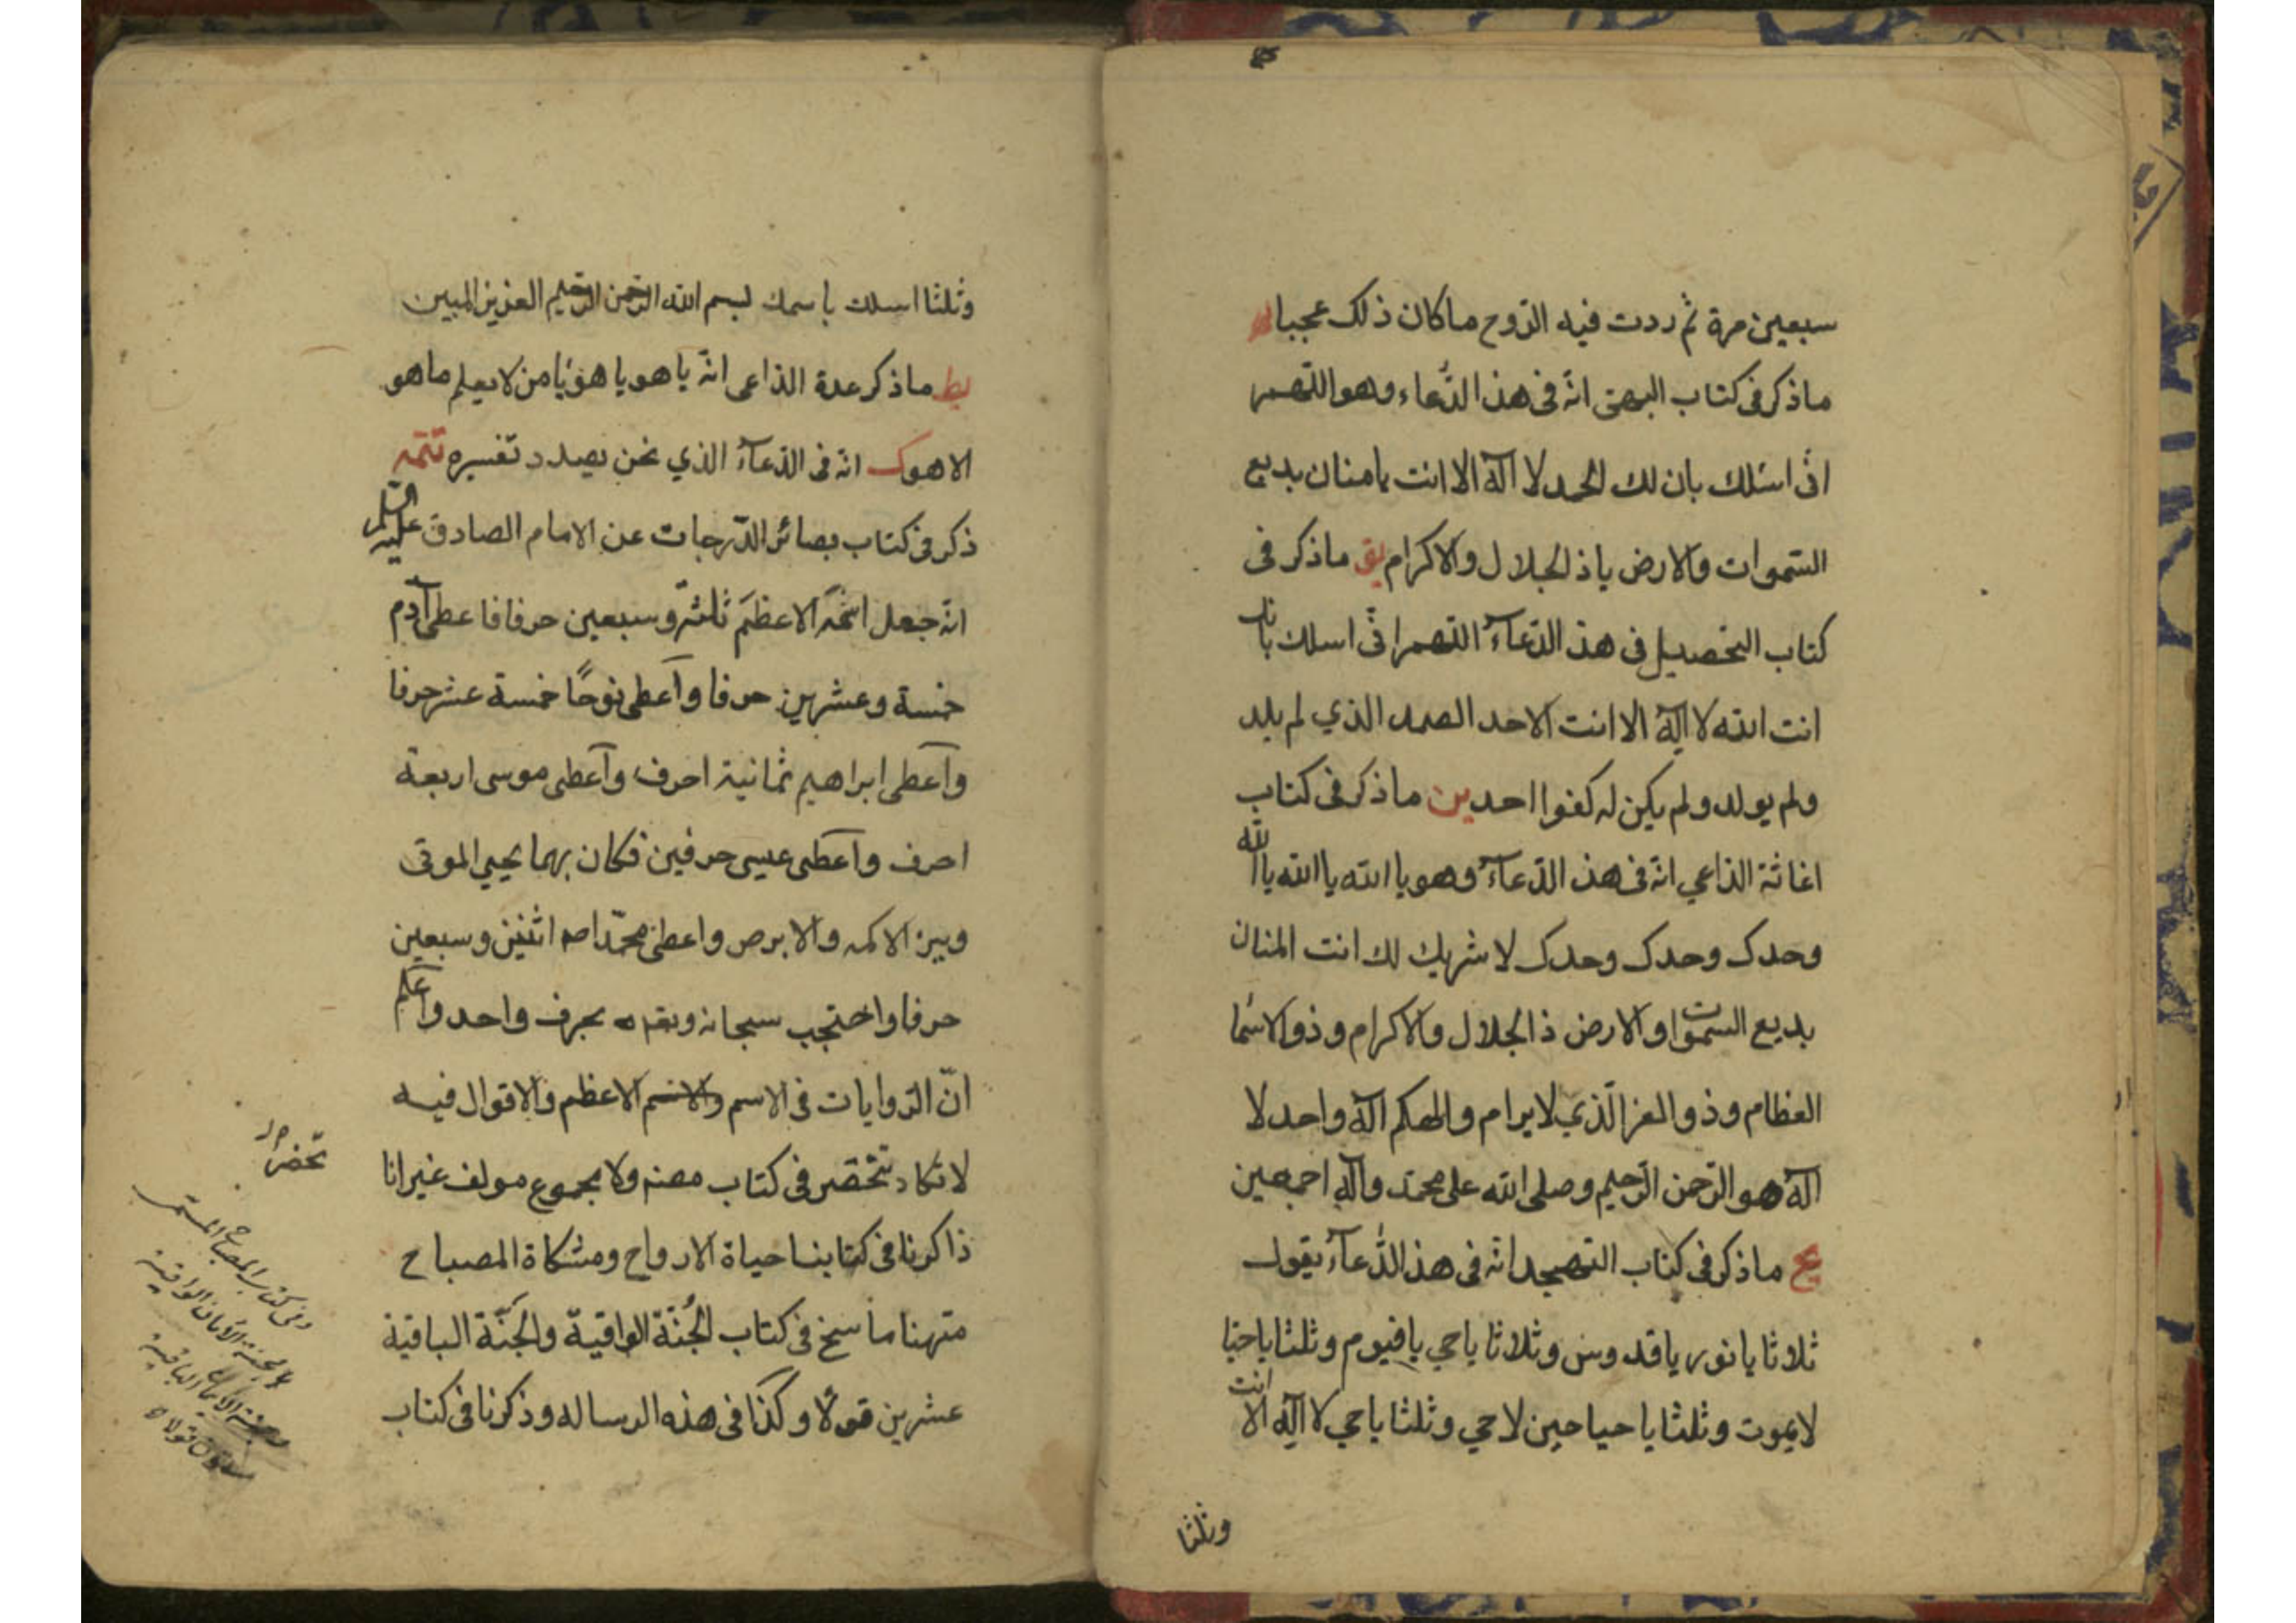 سبعين مرة ثم ردت فيه الروح ماكان ذلك عجبا
ماذكر فى كتاب البهى انّه فى هذ الدُّعاء وهو اللّهم
انّى اسئلك بان لك الحمد لا اله الا انت يا منان بديع
السّموات والارض ياذ الجلال والاكرام يو ماذكر فى
كتاب التحصيل فى هذ الدّعآء اللهم انّى اسلك بانك
انت الله لا اله الا انت الاحد الصمد الذي لم يلد
ولم يولد ولم يكن له كفوا احد ين ماذكر فى كتاب
اغاثة الداعي انّه فى هذ الدّعآء وهو يا الله يا الله يا الله
وحدك وحدك وحدك لا شريك لك انت المنان
بديع السموات والارض ذ الجلال والاكرام وذو الاسما
العظام وذو العز الّذي لا يرام والهكم اله واحد لا
اله هو الرّحمن الرّحيم وصلى الله على محمّد واله اجمعين
يح ماذكر فى كتاب التهجد انّه فى هذ الدّعآء يقول
ثلاثا يا نور يا قدوس وثلاثا ياحي يا قيوم وثلثا ياحيا
لايموت وثلثا يا حيا حين لاحي وثلثا ياحي لا اله الا انت
وثلثا
وثلثا اسلك باسمك بسم الله الرّحمن الرّحيم العزيز المبين
يط ماذكر عدة الداعى انّه يا هو يا هو يا من لا يعلم ما هو
الا هو ك انّه فى الدّعآء الذي نحن بصدد تفسيره تتمّه
ذكر فى كتاب بصائر الدّرجات عن الامام الصادق عليه السّلم
انّه جعل اسمه الاعظم ثلثة وسبعين حرفا فاعطى آدم
خمسة وعشرين حرفا وآعطى نوحًا خمسة عشر حرفا
وآعطى ابراهيم ثمانية احرف وآعطى موسى اربعة
احرف وآعطى عيسى حرفين فكان بهما يحيي الموتى
ويبرئ الاكمه والابرص واعطى محمّدا صه اثنين وسبعين
حرفا واحتجب سبحانه وتعاله بحرف واحد واعلم
انّ الرّوايات فى الاسم والاسم الاعظم والاقوال فيه
لا تكاد تنحصر فى كتاب مصنم ولا مجموع مولف غير انا
ذاكرنا فى كتابنا حياة الارواح ومشكاة المصباح
منهنا ما سنح فى كتاب الجُنّة الواقيّة والجَنّة الباقية
عشرين قولًا وكذا فى هذه الرساله وذكرنا فى كتاب
وفى كتاب المصباح